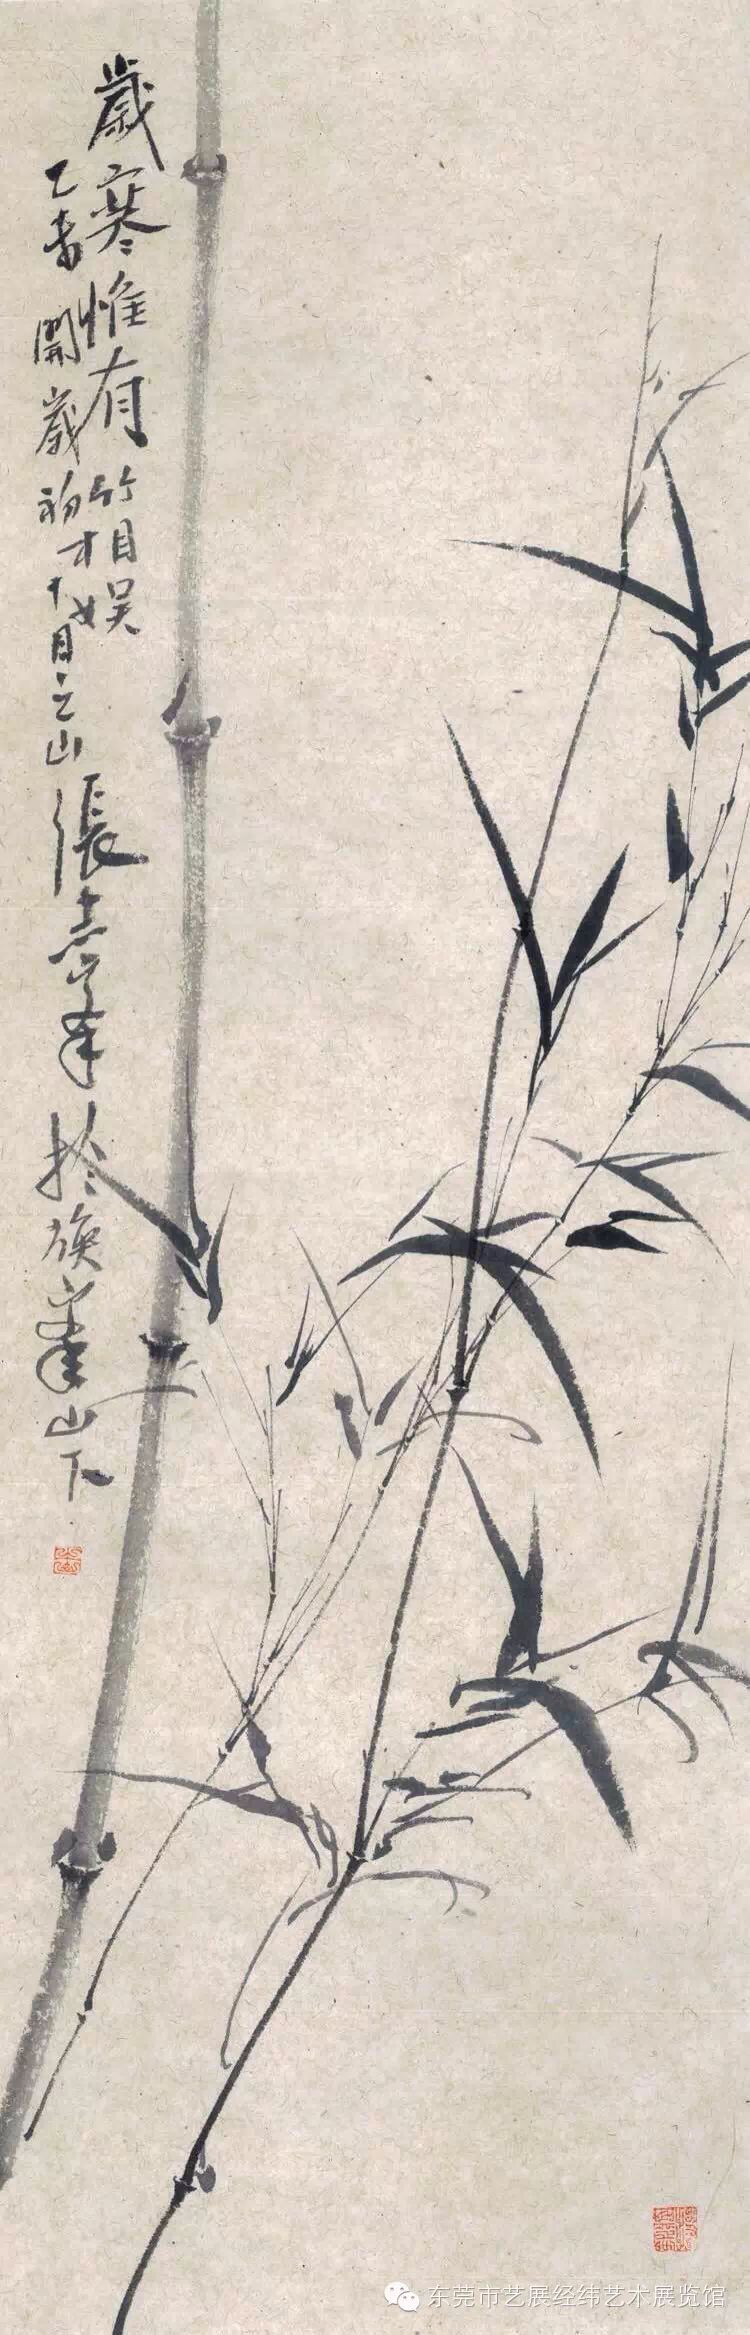 歲寒惟有竹相娛
乙未開歲初十日之山張志峯於旗峯山下
东莞市艺展经纬艺术展览馆